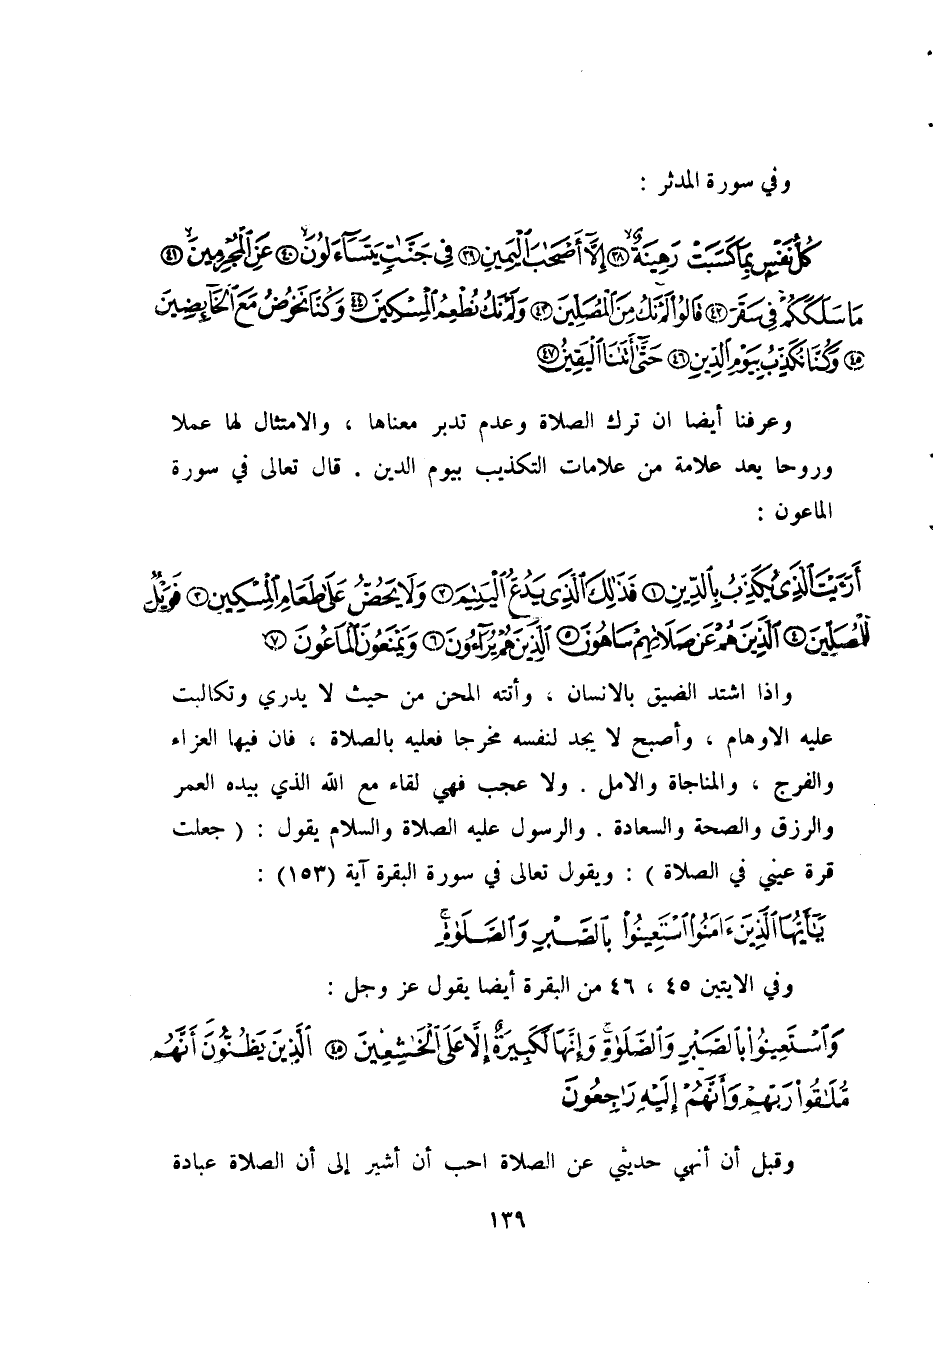 وفي سورة المدثر :
كُلُّ نَفْسٍ بِمَا كَسَبَتْ رَهِينَةٌ ﴿٣٨﴾ إِلَّا أَصْحَٰبَ الْيَمِينِ ﴿٣٩﴾ فِي جَنَّٰتٍ يَتَسَآءَلُونَ ﴿٤٠﴾ عَنِ الْمُجْرِمِينَ ﴿٤١﴾
مَا سَلَكَكُمْ فِي سَقَرَ ﴿٤٢﴾ قَالُوا لَمْ نَكُ مِنَ الْمُصَلِّينَ ﴿٤٣﴾ وَلَمْ نَكُ نُطْعِمُ الْمِسْكِينَ ﴿٤٤﴾ وَكُنَّا نَخُوضُ مَعَ الْخَآئِضِينَ
﴿٤٥﴾ وَكُنَّا نُكَذِّبُ بِيَوْمِ الدِّينِ ﴿٤٦﴾ حَتَّىٰٓ أَتَىٰنَا الْيَقِينُ ﴿٤٧﴾
وعرفنا أيضا ان ترك الصلاة وعدم تدبر معناها ، والامتثال لها عملا
وروحا يعد علامة من علامات التكذيب بيوم الدين . قال تعالى في سورة
الماعون :
أَرَءَيْتَ الَّذِي يُكَذِّبُ بِالدِّينِ ﴿١﴾ فَذَٰلِكَ الَّذِي يَدُعُّ الْيَتِيمَ ﴿٢﴾ وَلَا يَحُضُّ عَلَىٰ طَعَامِ الْمِسْكِينِ ﴿٣﴾ فَوَيْلٌ
لِّلْمُصَلِّينَ ﴿٤﴾ الَّذِينَ هُمْ عَن صَلَاتِهِمْ سَاهُونَ ﴿٥﴾ الَّذِينَ هُمْ يُرَآءُونَ ﴿٦﴾ وَيَمْنَعُونَ الْمَاعُونَ ﴿٧﴾
واذا اشتد الضيق بالانسان ، وأتته المحن من حيث لا يدري وتكالبت
عليه الاوهام ، وأصبح لا يجد لنفسه مخرجا فعليه بالصلاة ، فان فيها العزاء
والفرج ، والمناجاة والامل . ولا عجب فهي لقاء مع الله الذي بيده العمر
والرزق والصحة والسعادة . والرسول عليه الصلاة والسلام يقول : ( جعلت
قرة عيني في الصلاة ) : ويقول تعالى في سورة البقرة آية (١٥٣) :
يَٰٓأَيُّهَا الَّذِينَ ءَامَنُوا اسْتَعِينُوا بِالصَّبْرِ وَالصَّلَوٰةِ ۚ
وفي الايتين ٤٥ ، ٤٦ من البقرة أيضا يقول عز وجل :
وَاسْتَعِينُوا بِالصَّبْرِ وَالصَّلَوٰةِ ۚ وَإِنَّهَا لَكَبِيرَةٌ إِلَّا عَلَى الْخَٰشِعِينَ ﴿٤٥﴾ الَّذِينَ يَظُنُّونَ أَنَّهُم
مُّلَٰقُوا رَبِّهِمْ وَأَنَّهُمْ إِلَيْهِ رَٰجِعُونَ
وقبل أن أنهي حديثي عن الصلاة احب أن أشير إلى أن الصلاة عبادة
١٣٩